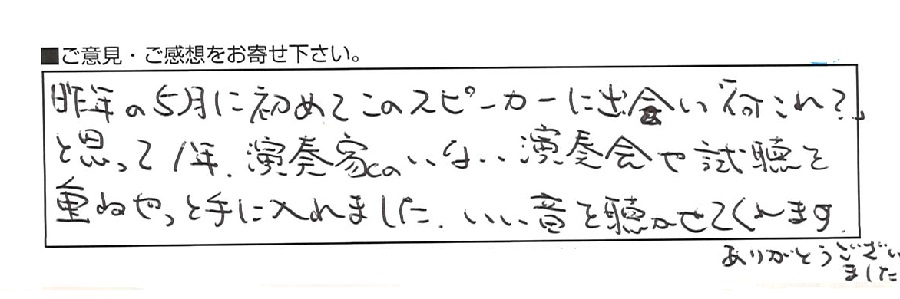 ■ご意見・ご感想をお寄せ下さい。
昨年の5月に初めてこのスピーカーに出会い「何これ?」
と思って1年、演奏家のいない演奏会や試聴を
重ねやっと手に入れました。いい音を聴かせてくれます。
ありがとうござい
ました